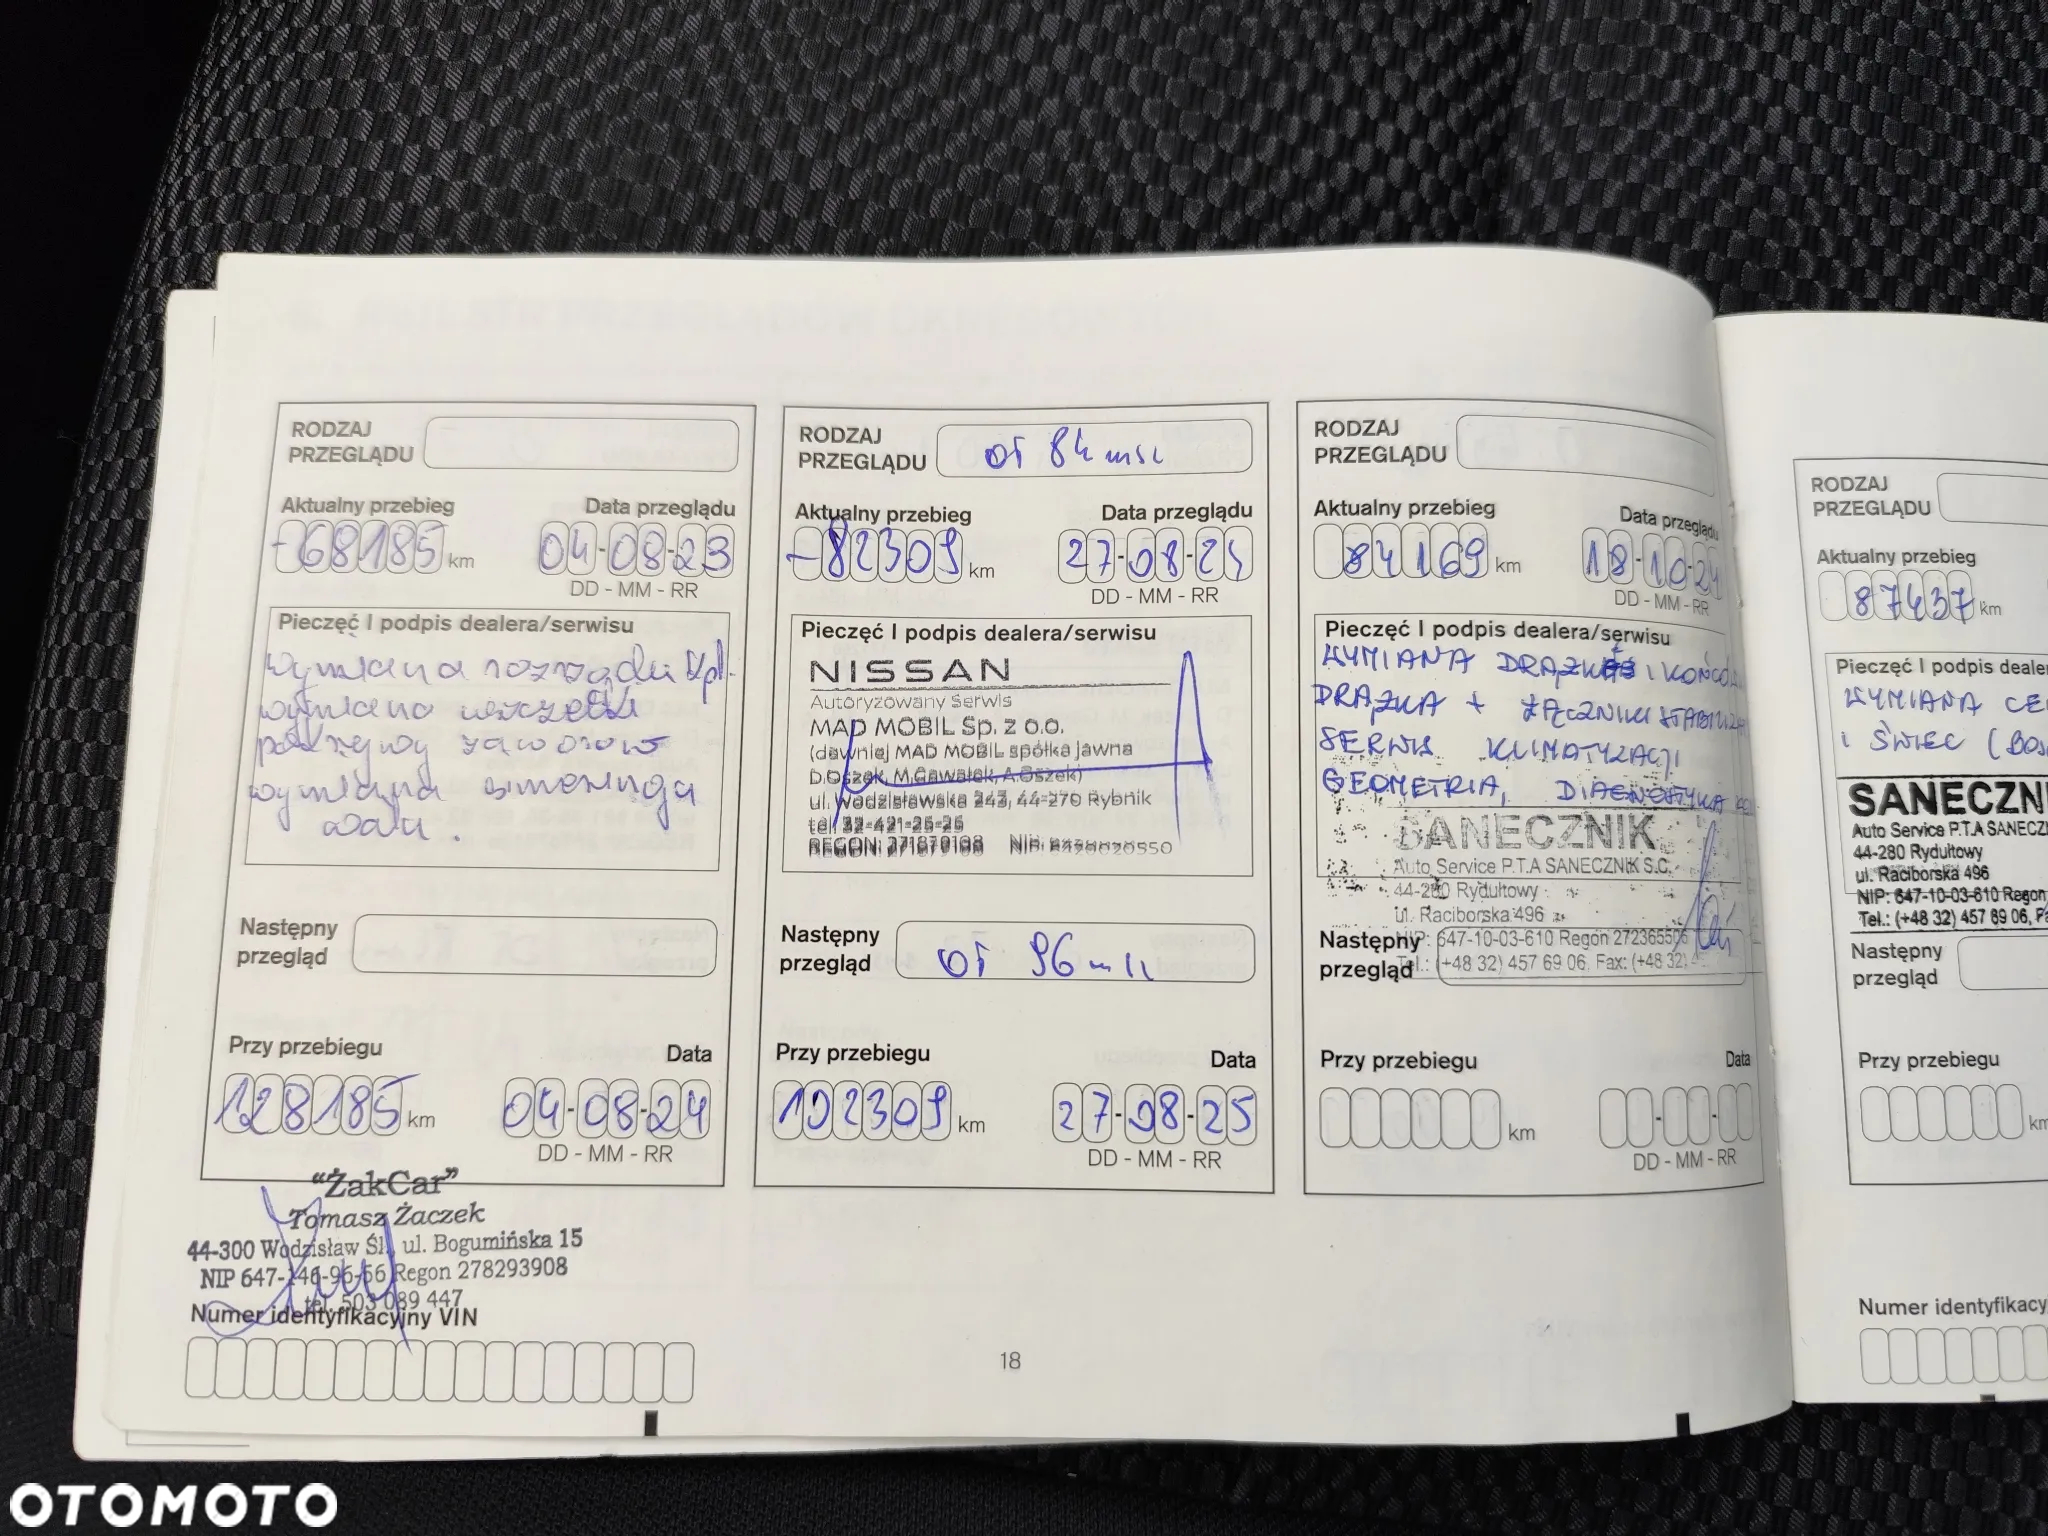 RODZAJ
PRZEGLĄDU
Aktualny przebieg Data przeglądu
-68185 km 04-08-23
DD - MM - RR
Pieczęć I podpis dealera/serwisu
wymiana rozrządu kpl.
wymiana uszczelki
pokrywy zaworów
wymiana simeringa
wału.
Następny
przegląd
Przy przebiegu Data
128185 km 04-08-24
DD - MM - RR
"ŻakCar"
Tomasz Żaczek
44-300 Wodzisław Śl., ul. Bogumińska 15
NIP 647-146-96-56 Regon 278293908
tel. 503 089 447
Numer identyfikacyjny VIN
RODZAJ
PRZEGLĄDU OT 84 msc
Aktualny przebieg Data przeglądu
-82309 km 27-08-24
DD - MM - RR
Pieczęć I podpis dealera/serwisu
NISSAN
Autoryzowany Serwis
MAD MOBIL Sp. z o.o.
(dawniej MAD MOBIL spółka jawna
D.Oszek, M.Gawalek, A.Oszek)
ul. Wodzisławska 243, 44-270 Rybnik
tel. 32-421-25-25
REGON: 271870198 NIP: 6420020550
Następny
przegląd OT 96 msc
Przy przebiegu Data
102309 km 27-08-25
DD - MM - RR
18
RODZAJ
PRZEGLĄDU
Aktualny przebieg Data przeglądu
84169 km 18-10-24
DD - MM - RR
Pieczęć I podpis dealera/serwisu
WYMIANA DRĄŻKA I KOŃCÓ
DRĄŻKA + ŁĄCZNIKI STABILIZA
SERWIS KLIMATYZACJI
GEOMETRIA, DIAGNOSTYKA
SANECZNIK
Auto Service P.T.A SANECZNIK S.C.
44-280 Rydułtowy
ul. Raciborska 496
NIP: 647-10-03-610 Regon 272365506
Tel.: (+48 32) 457 69 06, Fax: (+48 32) 4
Następny
przegląd
Przy przebiegu Data
km
DD - MM - RR
RODZAJ
PRZEGLĄDU
Aktualny przebieg
87437 km
Pieczęć I podpis dealer
WYMIANA CE
I ŚWIEC (BOS
SANECZNI
Auto Service P.T.A SANECZ
44-280 Rydułtowy
ul. Raciborska 496
NIP: 647-10-03-610 Regon
Tel.: (+48 32) 457 69 06, Fa
Następny
przegląd
Przy przebiegu
km
Numer identyfikacy
OTOMOTO